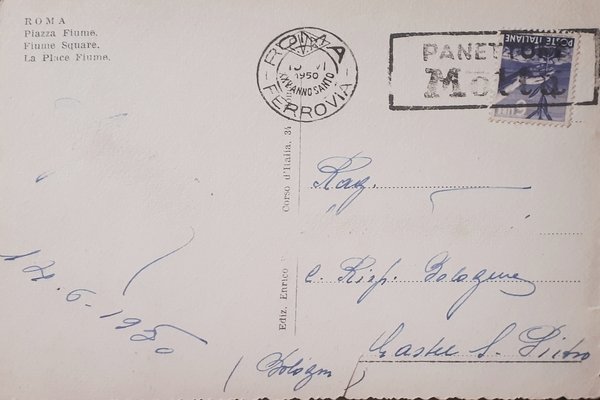 ROMA
Piazza Fiume.
Fiume Square.
La Place Fiume.
ROMA
1950
XXV ANNO SANTO
FERROVIA
PANETTONE
Motta
POSTE ITALIANE
Ediz. Enrico
Corso d'Italia, 34
Rag.
C. Risp. Bologna
Castel S. Pietro
(Bologna